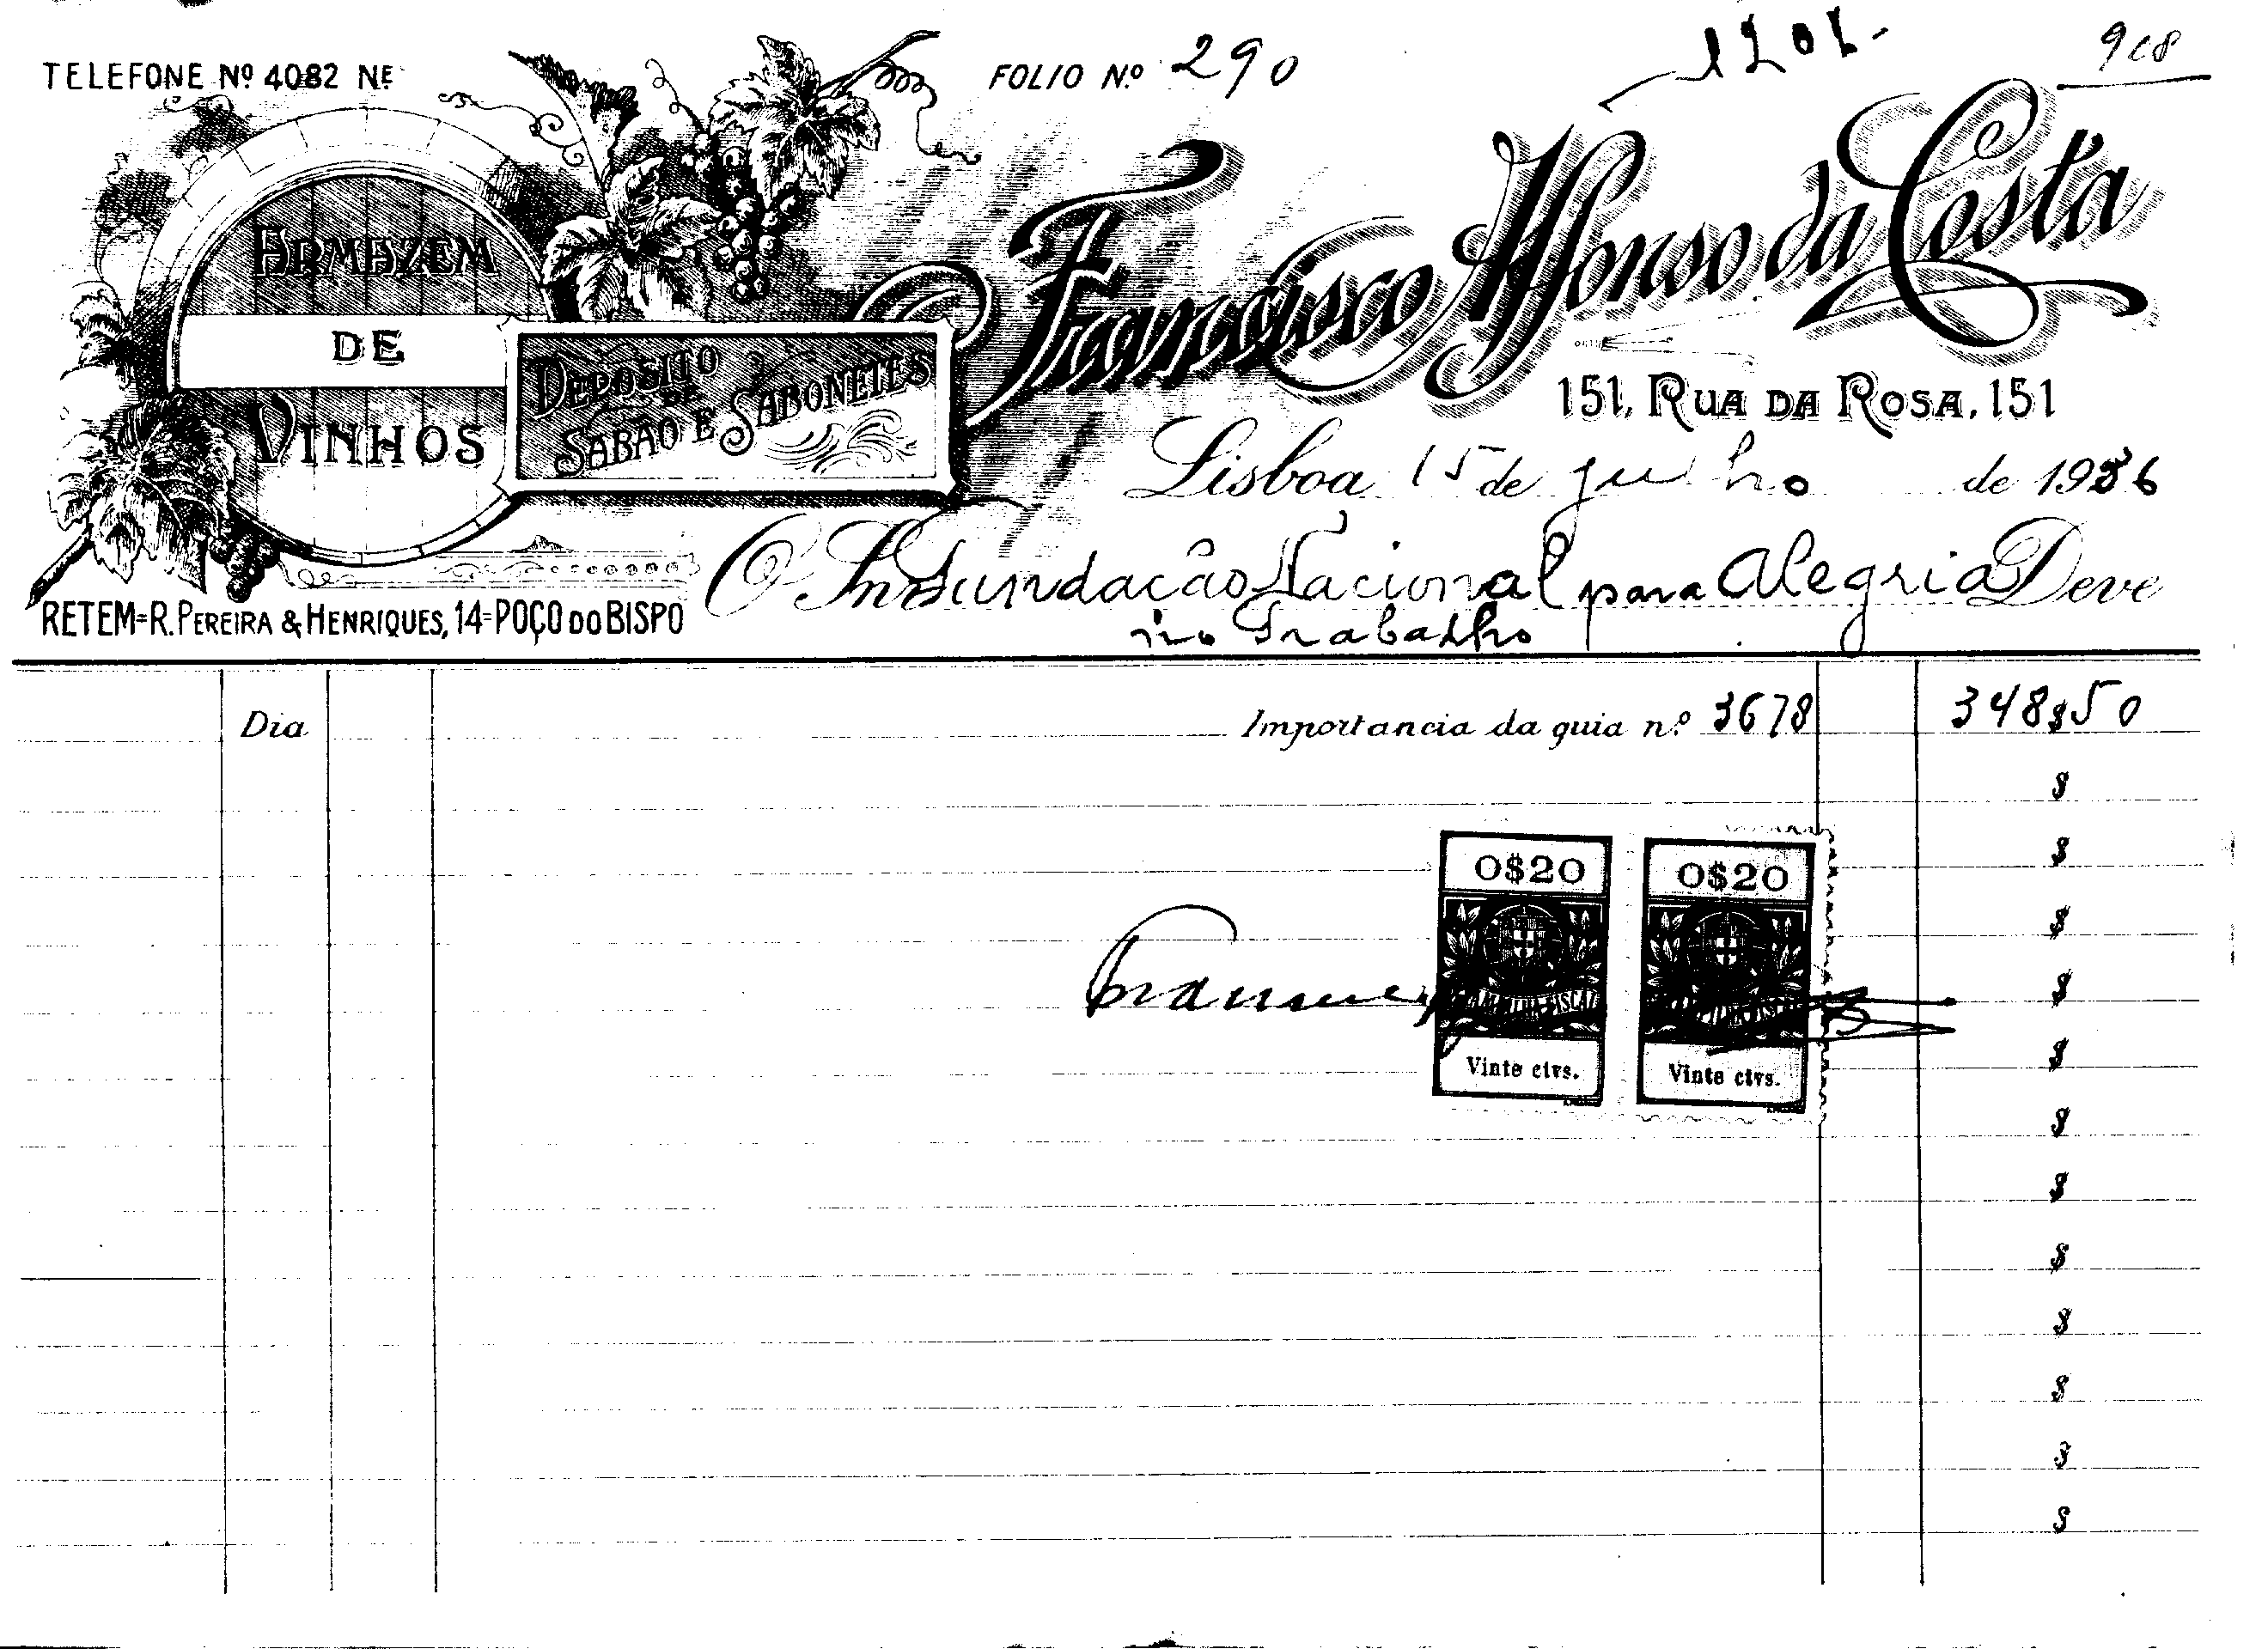 TELEFONE Nº 4082 NE
FOLIO Nº 290
918
ARMAZEM
DE
VINHOS
DEPOSITO
DE
SABÃO E SABONETES
Francisco Affonso da Costa
151, RUA DA ROSA, 151
Lisboa 15 de julho de 1936
O Sr Fundação Nacional para Alegria Deve
no Trabalho
RETEM=R. PEREIRA & HENRIQUES, 14=POÇO DO BISPO
Dia Importancia da guia n.º 3678 348$50
$
$
$
$
$
$
$
$
$
$
$
$
O$20 O$20
ESTAMPILHA FISCAL
Vinte ctvs. Vinte ctvs.